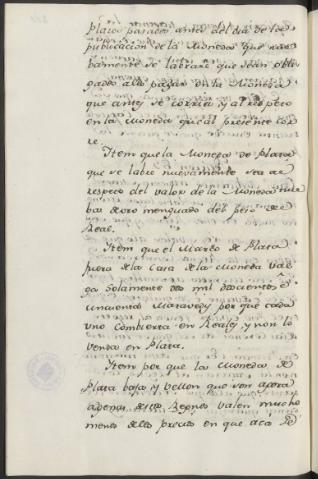 plazos pasados antes del dia de la
publicacion de la Moneda que nue
bamente se labrare que sean obli
gados a los pagar en la Moneda
que antes se corria y al respeto
en la Moneda que al presente cor
re.
Item que la Moneda de Plata
que se labre nuevamente sea al
respeto del valor de la Moneda nue
ba de oro menguado del peso de
Real.
Item que el Marco de Plata
pura de la Casa de la Moneda val
ga solamente dos mil doscientos é
cincuenta Maravedis por que cada
uno combierta en Reales, y non lo
venda en Plata.
Item por que la Moneda de
Plata baja y vellon que son agora
agenas destos Reynos valen mucho
menos de los precios en que acá se